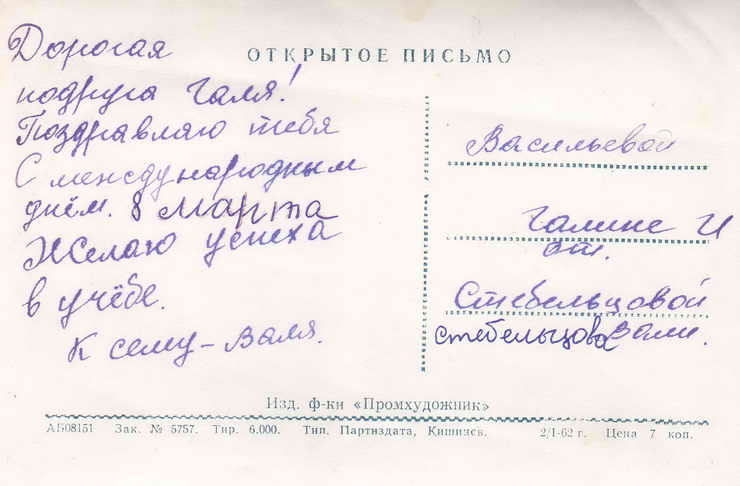 ОТКРЫТОЕ ПИСЬМО
Дорогая
подруга Галя!
Поздравлаю тебя
С международным
днём. 8 Марта
Желаю успеха
в учёбе.
К сему – Валя.
Васильевой
Галине И
от.
Стебельцовой
стебельцова Вали.
Изд. ф-ки «Промхудожник»
АБ08151 Зак. № 5757. Тир. 6.000. Тип. Партиздата, Кишинев. 2/I-62 г. Цена 7 коп.